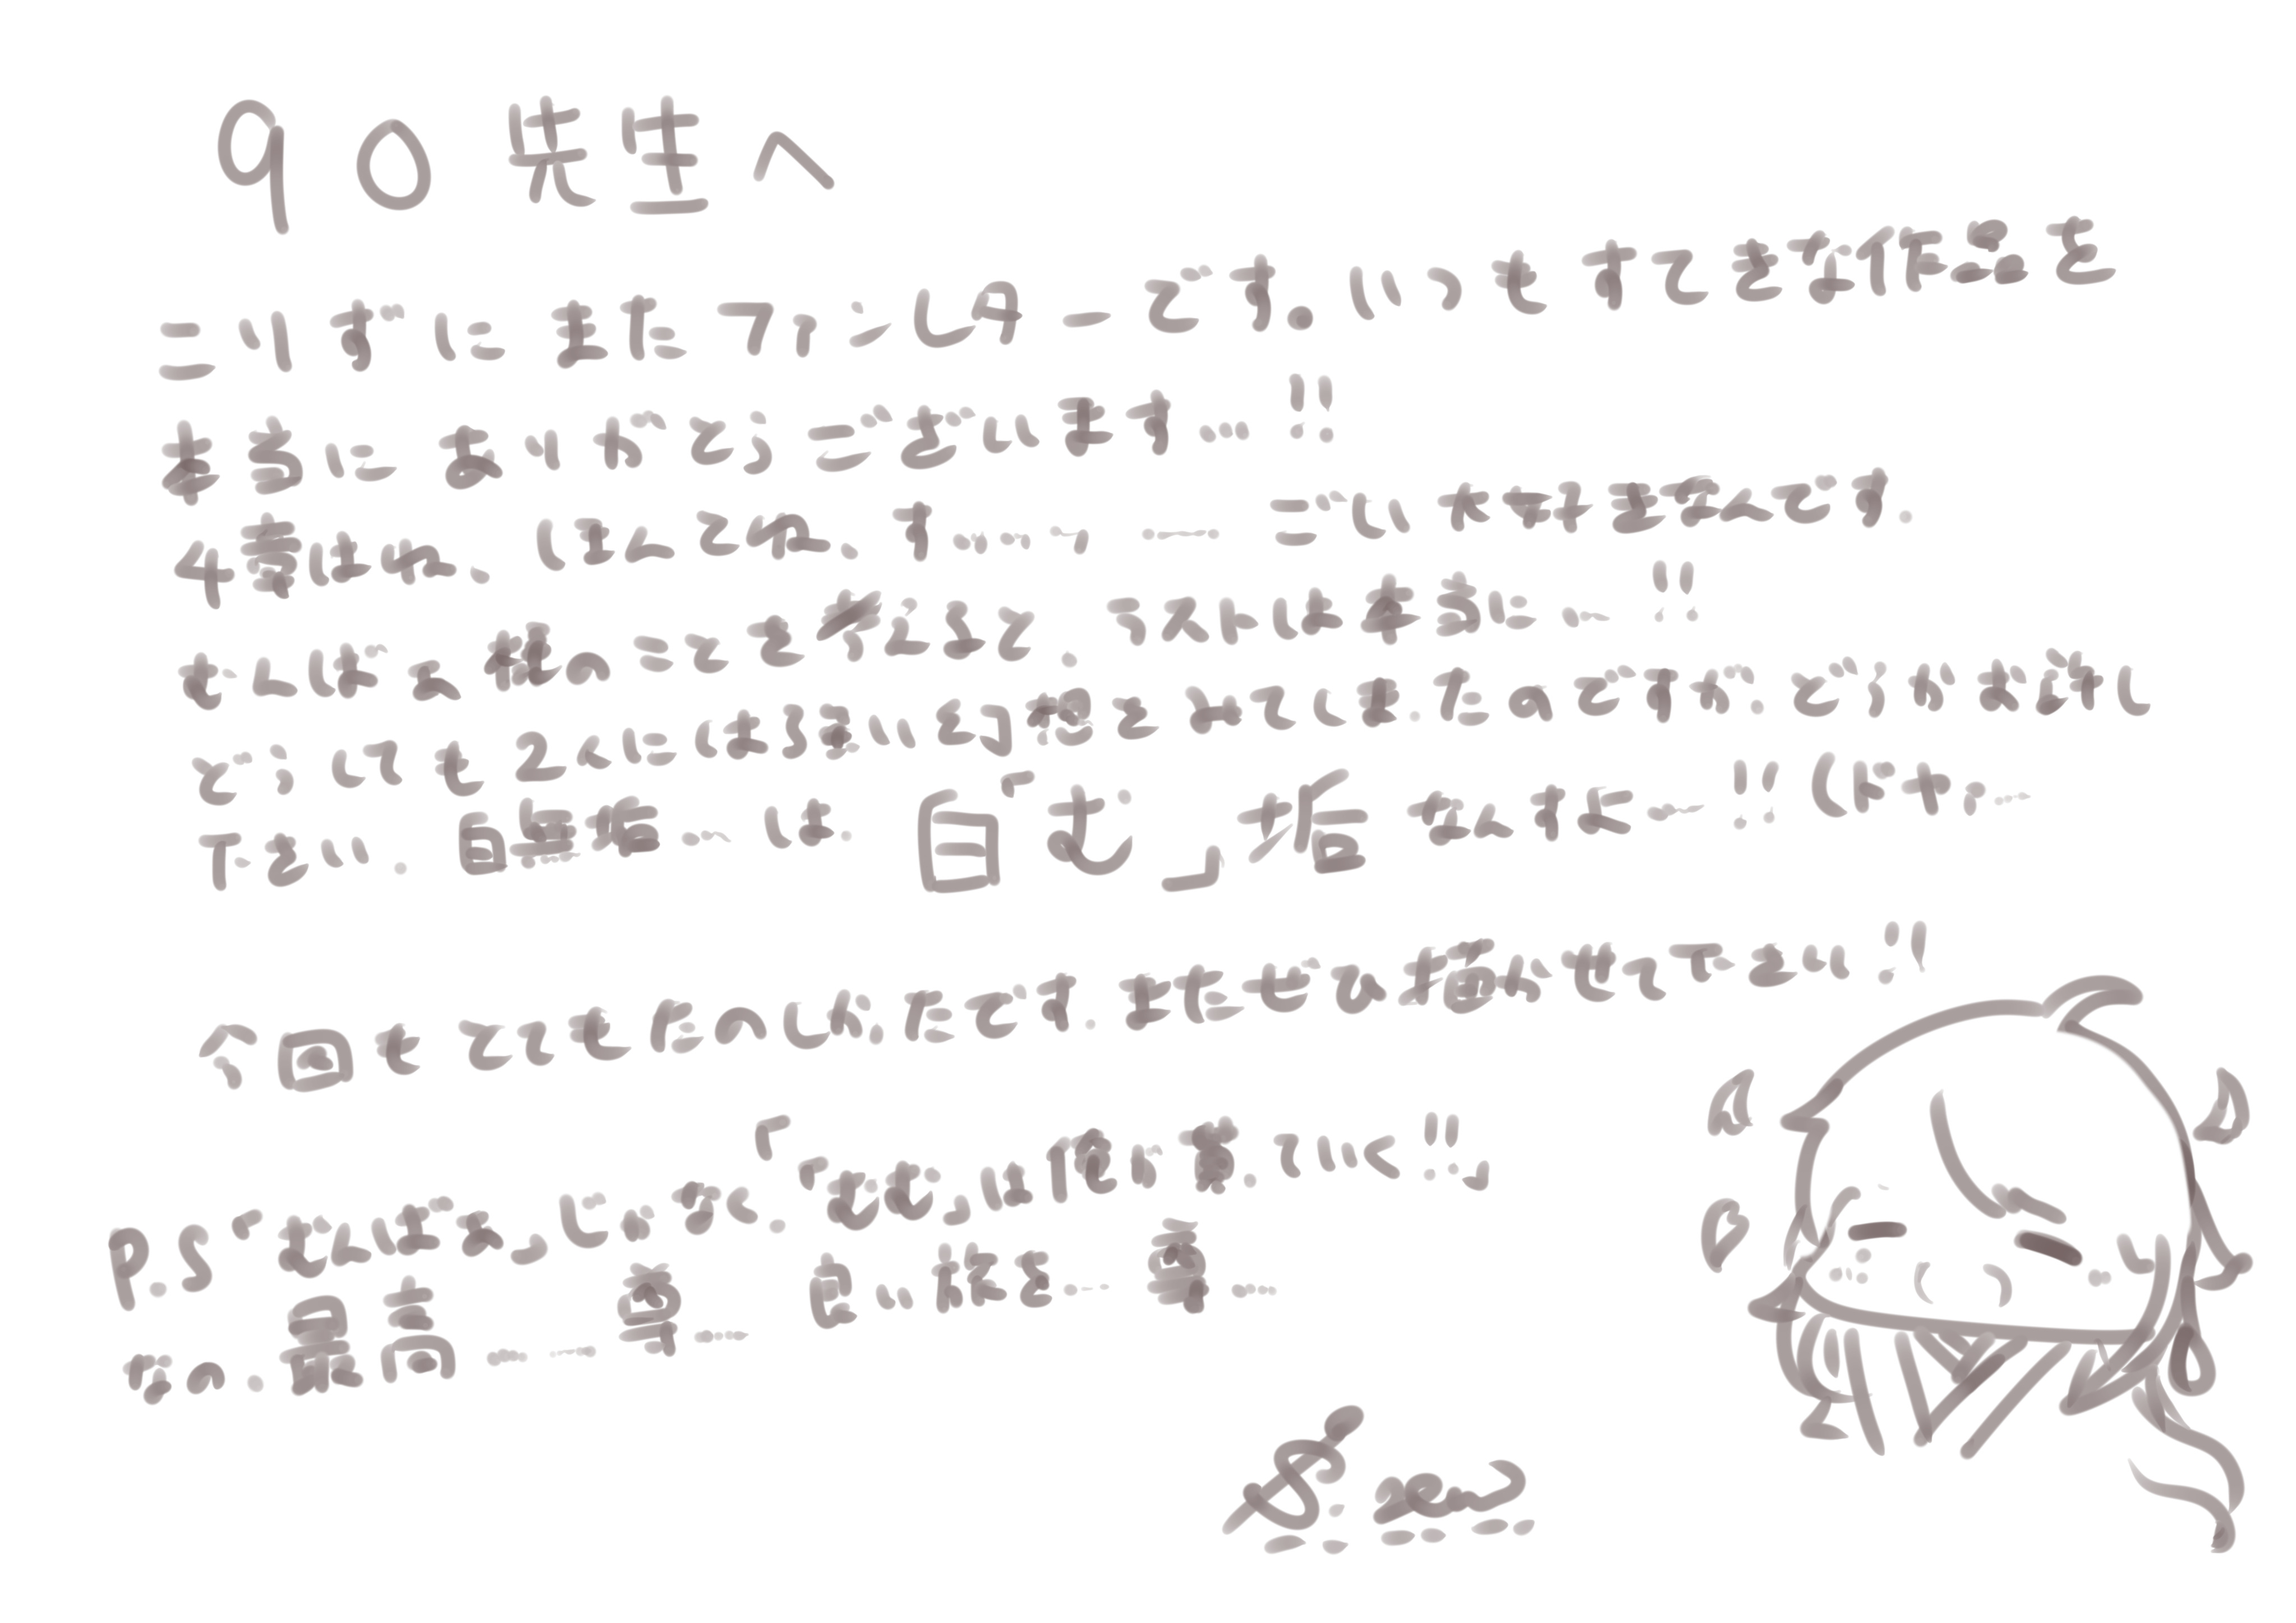 90先生へ
こりずにまたファンレターです。いつもすてきな作品を
本当にありがとうございます…!!
4章はね、ほんとね、す……、……ごい大好きなんです。
むんばぁ様のことを考えると、ラストは本当に……!!
どうしても2人には強い幻想を抱いてしまったのですが、どうかお許し
下さい。白無垢……は「白む」垢なんすよ……!!(はや…
今回もとてもたのしかたです。またぜひ描かせて下さい!!
P.S「むんばぁ」じゃなく、「「むむ」は俺が貰ていく!!」
なの、最高……尊……白い様を……尊……